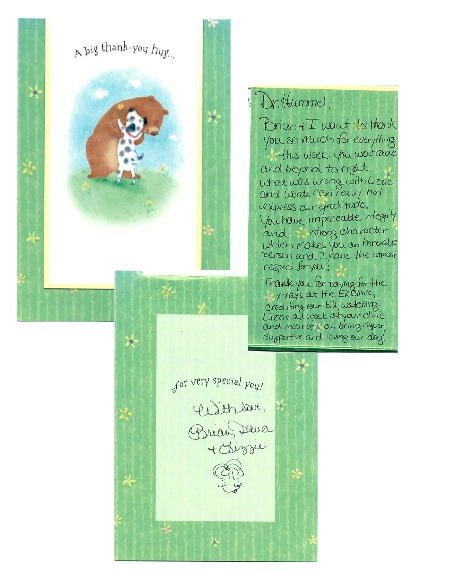 A big thank-you hug...
Dr. Hummel,
Brian + I want to thank
you so much for everything
this week. You went above
and beyond to right
what was wrong with Lizzie
and words can really not
express our gratitude.
You have impeccable integrity
and strong character
which makes you an honorable
person and I have the utmost
respect for you!
Thank you for paying for the
x-rays at the ER Clinic,
crediting our bill, watching
Lizzie all week at your clinic
and most of all being
supportive and loving our dog!
for very special you!
With love,
Brian,
+ Lizzie